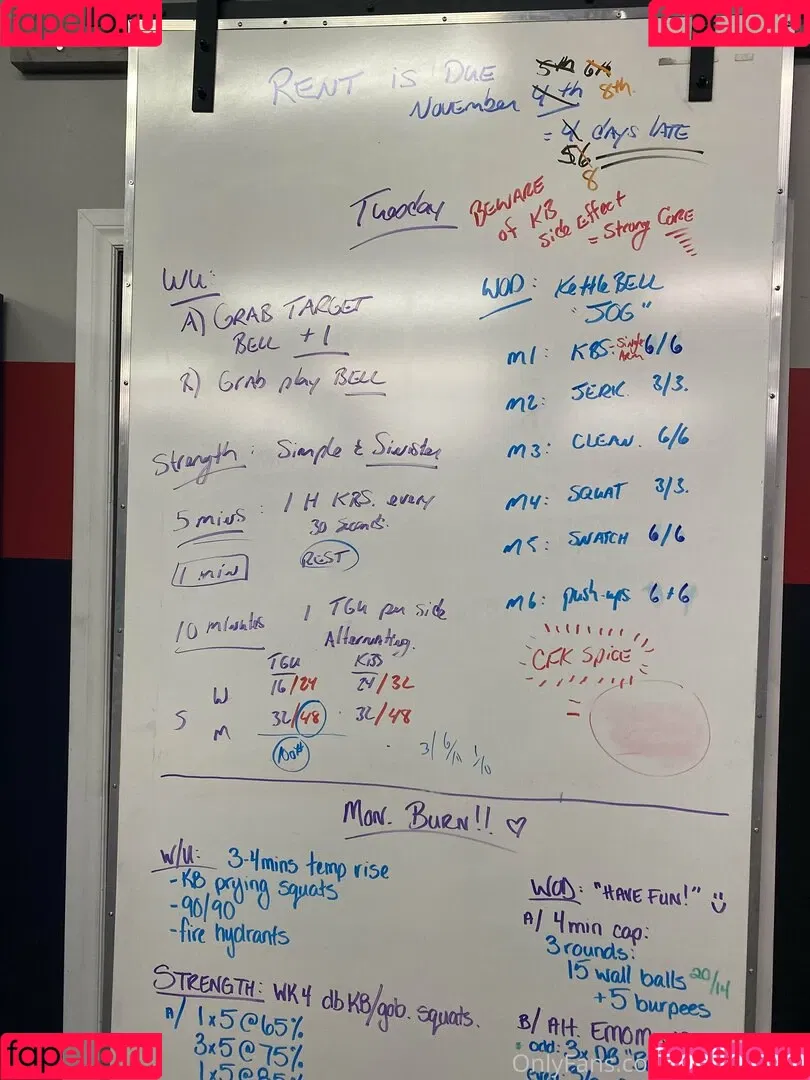 fapello.ru
fapello.ru
RENT IS DUE
November 4th 5th 6th 8th.
= 4 days LATE
5 6
8
Tuesday
BEWARE
of KB
side Effect
= Strong CORE
WU:
A) GRAB TARGET
BELL +1
B) Grab play BELL
Strength: Simple & Sinister
5 mins: 1 H KBS. every
30 Seconds.
1 min REST
10 minutes 1 TGU per side
Alternating.
TGU KBS
W 16/24 24/32
S
M 32/48 · 32/48
100#
3/6/10 1/10
WOD: KettleBELL
"JOG"
M1: KBS: Single Arm 6/6
M2: JERK 3/3.
M3: CLEAN. 6/6
M4: SQUAT 3/3.
M5: SNATCH 6/6
M6: push-ups 6+6
CFK SPICE
=
Mon. Burn!! ♡
W/U: 3-4mins temp rise
-KB prying squats
-90/90
-fire hydrants
STRENGTH: WK4 db KB/gob. squats.
A/ 1x5@65%
3x5@75%
1x5@85%
WOD: "HAVE FUN!" :)
A/ 4min cap:
3 rounds:
15 wall balls 20/14
+5 burpees
B/ Alt. Emom
odd: 3x DB
OnlyFans.co
fapello.ru
fapello.ru